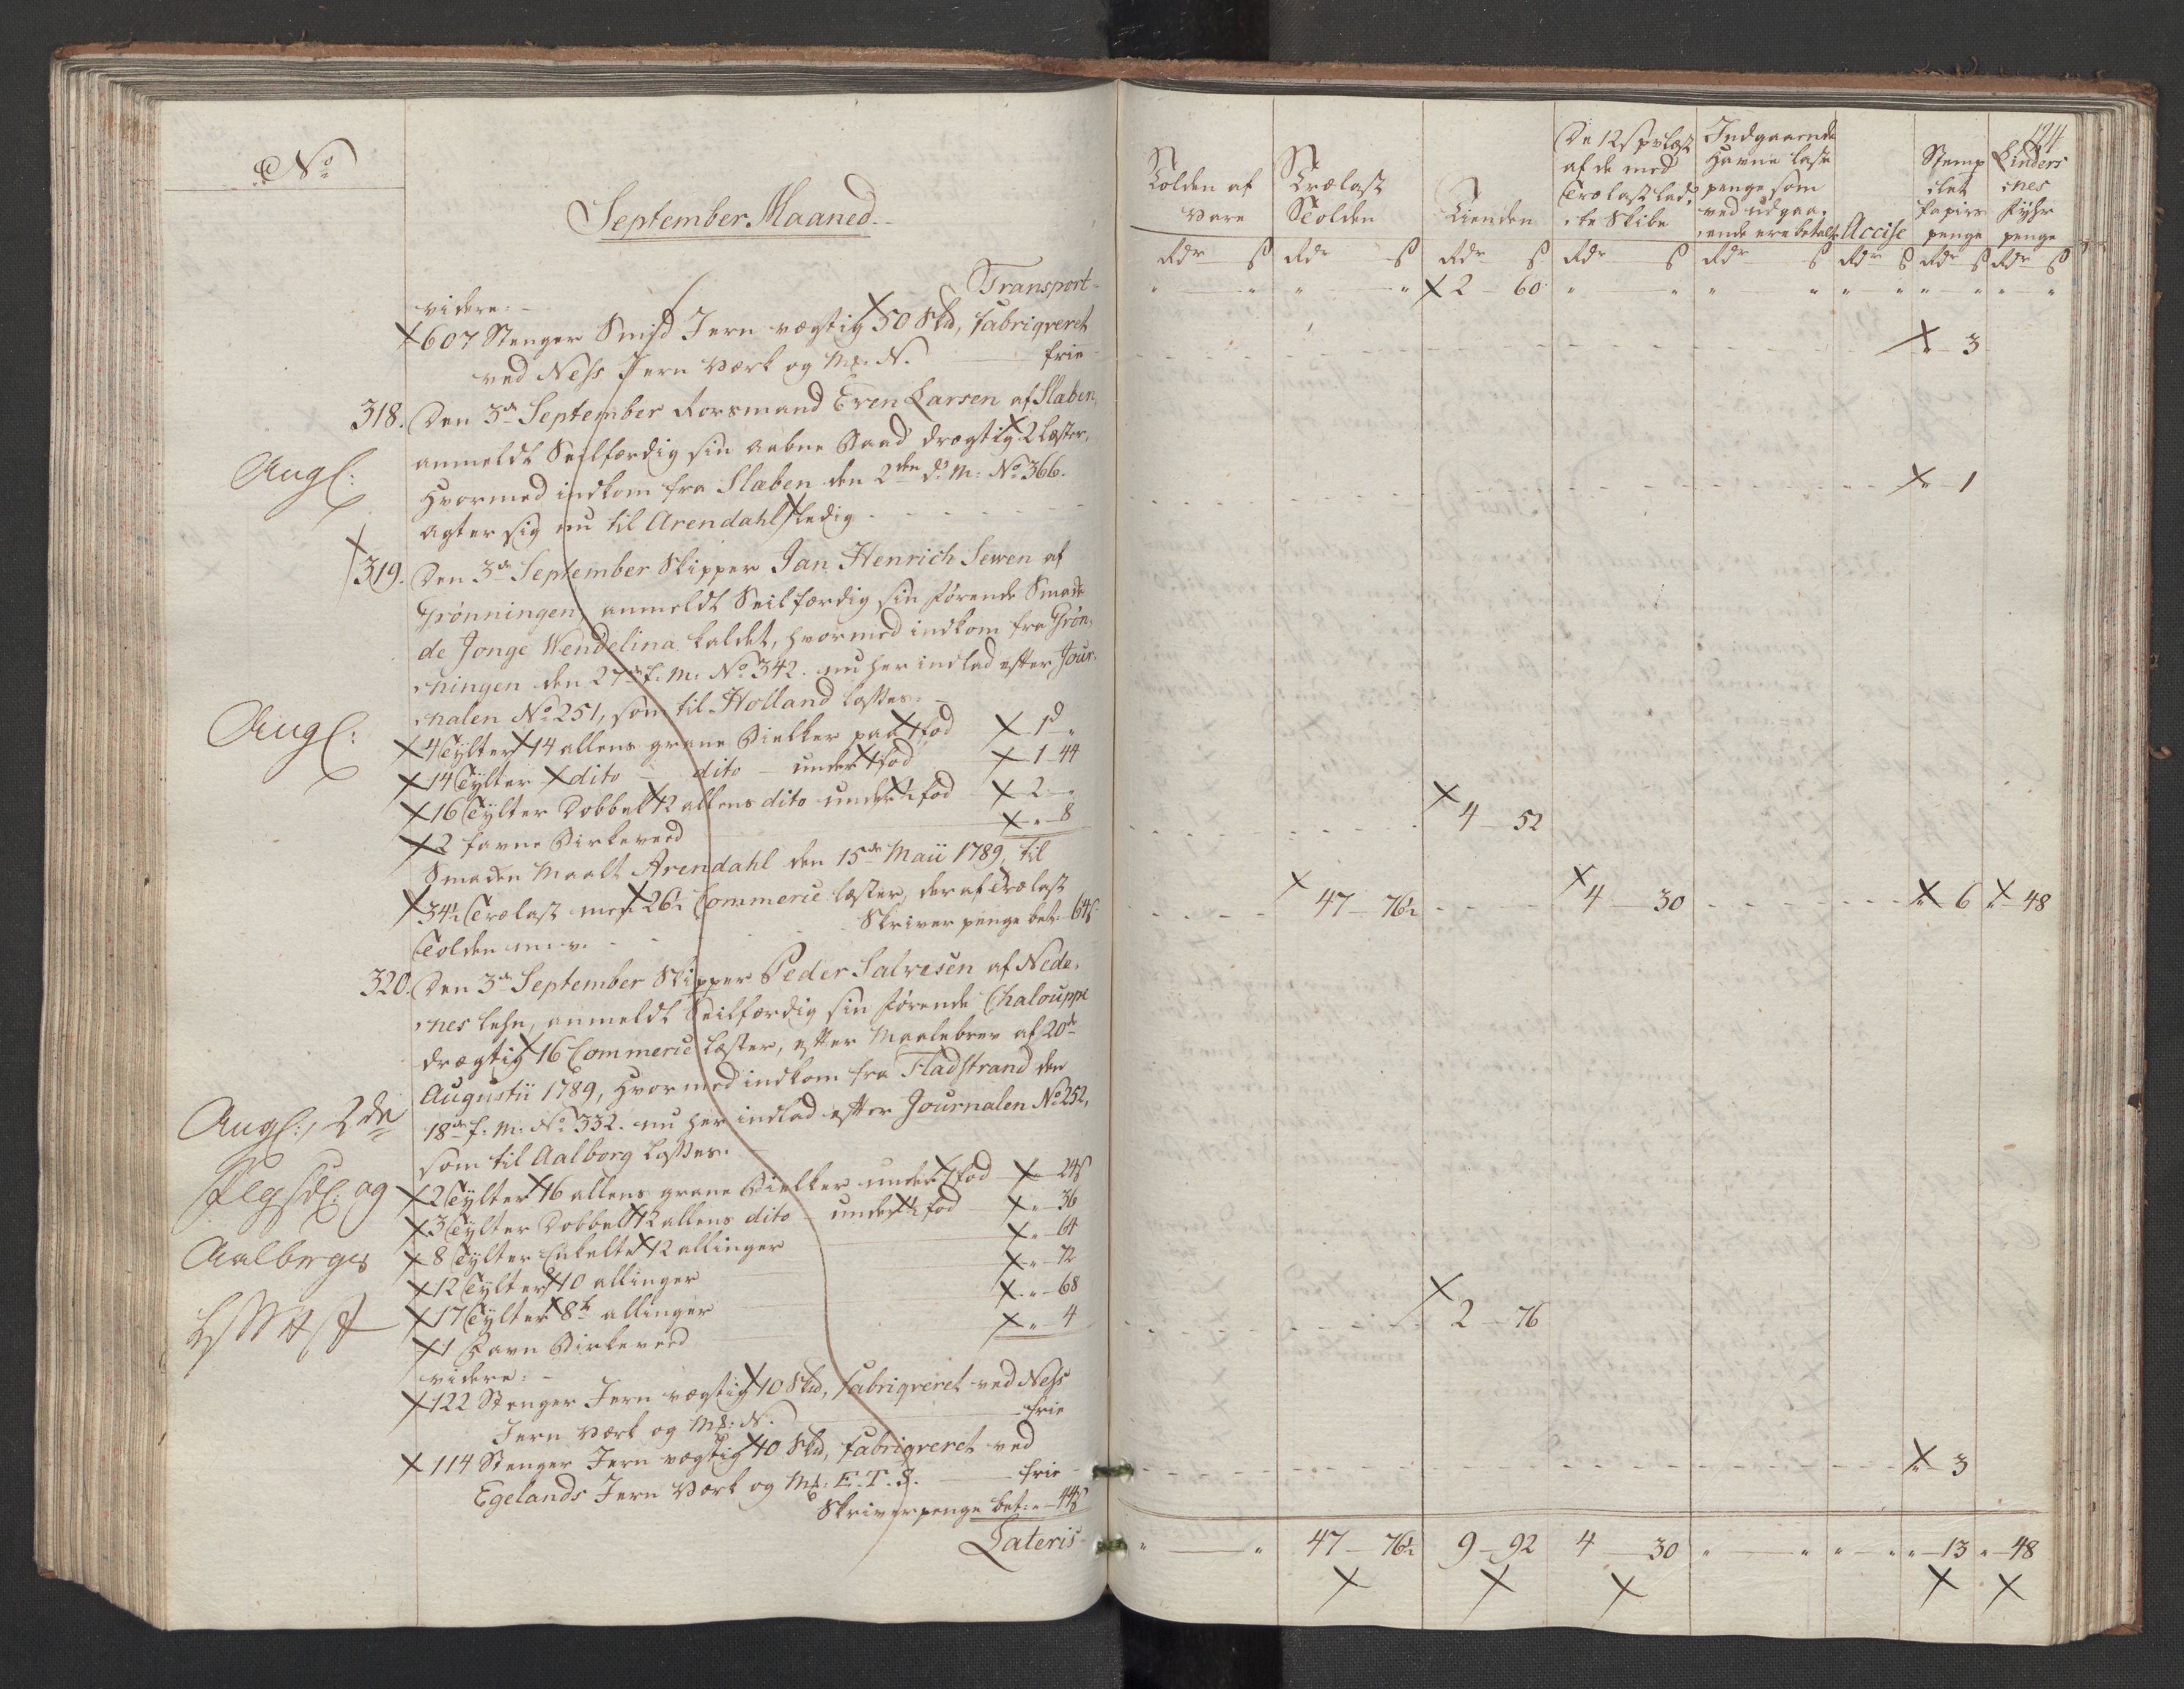 No
September Maaned
Transport
videre:
607 Stenger Smid Jern vægtig 50 Skd, fabriqveret
ved Ness Jern Værk og Mk. N. frie
318. Den 3de September Rorsmand Even Larsen af Staben,
anmeldt Seilfærdig sin aabne Baad drægtig 2 læster,
hvormed indkom fra Staben den 2den d. M. No 366.
agter sig nu til Arendahl ledig
Angl:
319. Den 3de September Skipper Jan Henrich Sewen af
Grønningen, anmeldt Seilfærdig sin førende Smak
de Jonge Wendelina kaldet, hvormed indkom fra Grøn,
ningen den 27de f. M. No 342. nu her indlad efter Jour,
nalen No 251, som til Holland losses.
Angl:
4 Tylter 14 allens grane Bielker paa 1 fod 1 d "
14 Tylter dito dito under 1 fod 1 44
16 Tylter Dobbelt 12 allens dito under 1 fod 2 "
2 favne Birkeveed " 8
Smaken Maalt Arendahl den 15de Maii 1789, til
34½ Trælast mest 26½ Commerce læster, deraf Trælast
Tolden m.v. Skriver penge bet: 64 ß
320. Den 3de September Skipper Peder Salvesen af Nede,
nes lehn, anmeldt Seilfærdig sin førende Chalouppe
drægtig 16 Commerce læster, efter Maalebrev af 20de
Augustii 1789, hvormed indkom fra Fladstrand den
18de f. M. No 332. nu her indlad efter Journalen No 252,
som til Aalborg losses.
Angl:, 2de
og
Aalborgs
2 Tylter 16 allens grane Bielker under 1 fod 24 ß
3 Tylter Dobbelt 12 allens dito under fod " 36
8 Tylter Enkelte 12 allinger " 64
12 Tylter 10 allinger " 72
17 Tylter 8te allinger " 68
1 Favn Birkeveed " 4
videre:
122 Stenger Jern vægtig 10 Skd, fabriqveret ved Ness
Jern Værk og Mk: N. frie
114 Stenger Jern vægtig 10 Skd, fabriqveret ved
Egelands Jern Værk og Mk: E.T.S. frie
Skriverpenge bet: " 44 ß
Lateris
194
Tolden af Vare
Trælast Tolden
Tienden
De 12 ß pr læst af de med Trælast lad, te Skibe
Indgaaende Havne laste penge som ved udgaa, ende ere betalt
Accise
Stemp let Papirs penge
Linders nes Fyhr penge
Rdr ß Rdr ß Rdr ß Rdr ß Rdr ß Rdr ß Rdr ß Rdr ß
2 60
" 3
" 1
4 52
47 76½ 4 30 " 6 " 48
2 76
" 3
" " 47 76½ 9 92 4 30 " " " " " 13 " 48